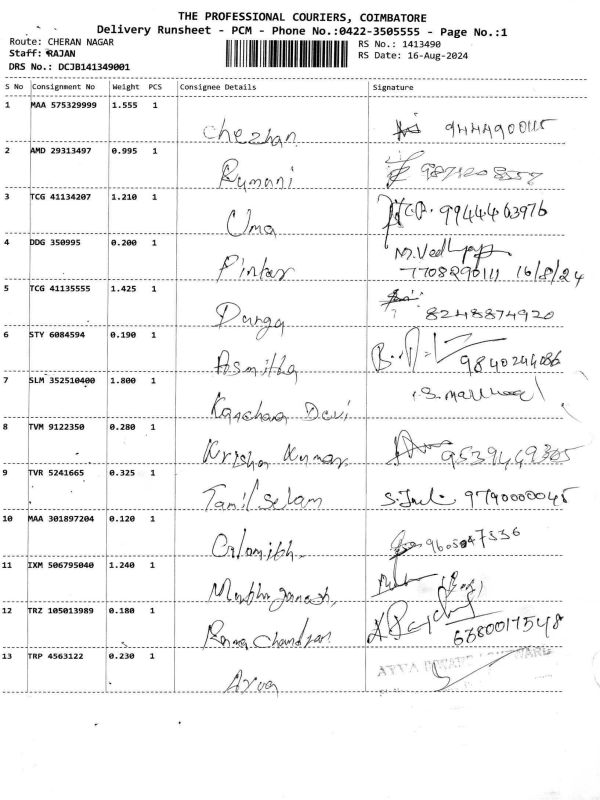 THE PROFESSIONAL COURIERS, COIMBATORE
Delivery Runsheet - PCM - Phone No.:0422-3505555 - Page No.:1
Route: CHERAN NAGAR RS No.: 1413490
Staff: RAJAN RS Date: 16-Aug-2024
DRS No.: DCJB141349001
S No Consignment No Weight PCS Consignee Details Signature
1 MAA 575329999 1.555 1
Chezhan
2 AMD 29313497 0.995 1
Rumani
3 TCG 41134207 1.210 1
Uma 9944463976
4 DDG 350995 0.200 1
Pintar 7708290111 16/8/24
5 TCG 41135555 1.425 1
Durga 8248874920
6 STY 6084594 0.190 1
Asmitha 9840244086
7 SLM 352510400 1.800 1
Kanchana Devi
8 TVM 9122350 0.280 1
Krishna Kumar 9539449305
9 TVR 5241665 0.325 1
Tamil Selam 9790000045
10 MAA 301897204 0.120 1
11 IXM 506795040 1.240 1
12 TRZ 105013989 0.180 1
Rama Chandran 6380017548
13 TRP 4563122 0.230 1
Ayya